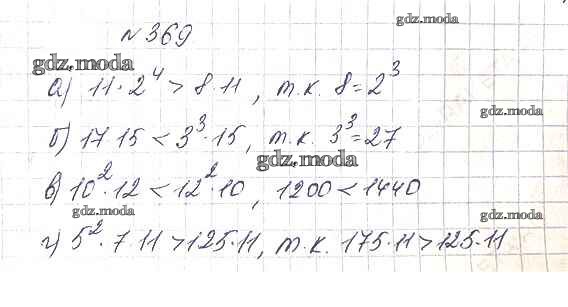 gdz.moda
№369
gdz.moda
а) 11·2⁴ > 8·11, т.к. 8=2³
gdz.moda
б) 17 15 < 3³·15, т.к. 3³=27
gdz.moda
в) 10²·12 < 12²·10, 1200 < 1440
gdz.moda
gdz.moda
г) 5²·7·11 > 125·11, т.к. 175·11 > 125·11